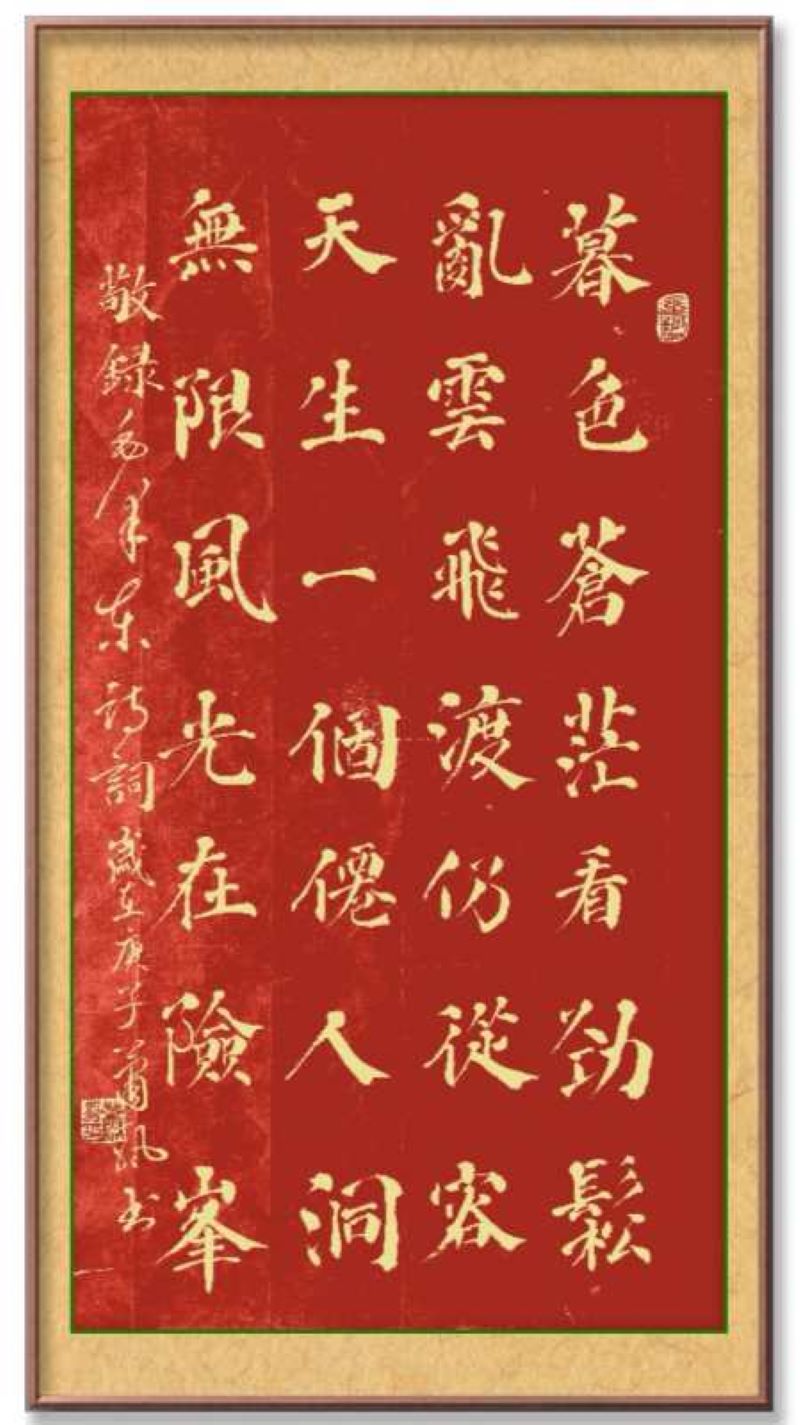 暮色蒼茫看勁鬆
亂雲飛渡仍從容
天生一個僊人洞
無限風光在險峯
敬録毛澤东詩詞歲在庚子蕭飒书